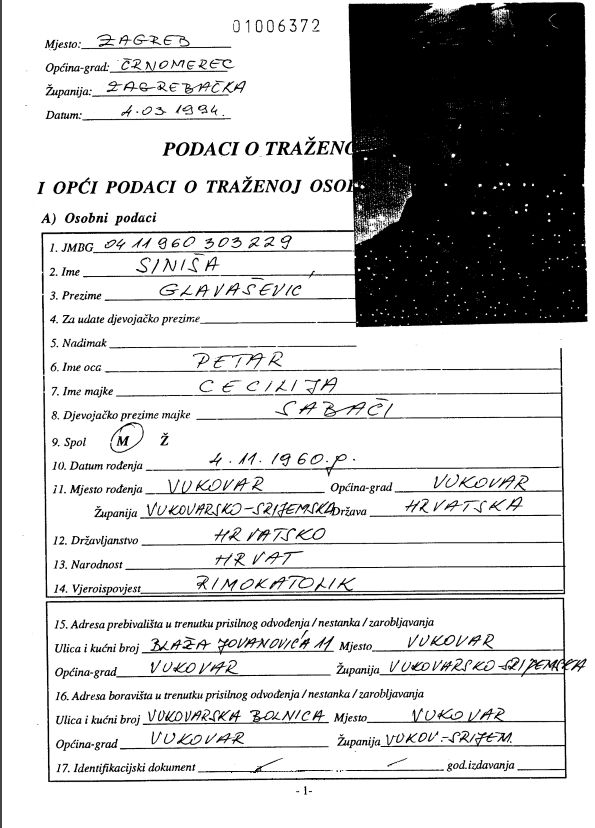 01006372
Mjesto: ZAGREB
Općina-grad: ČRNOMEREC
Županija: ZAGREBAČKA
Datum: 4.03.1994.
PODACI O TRAŽENO
I OPĆI PODACI O TRAŽENOJ OSOB
A) Osobni podaci
1. JMBG 0411960303229
2. Ime SINIŠA
3. Prezime GLAVAŠEVIC
4. Za udate djevojačko prezime
5. Nadimak
6. Ime oca PETAR
7. Ime majke CECILIJA
8. Djevojačko prezime majke SABAČI
9. Spol M Ž
10. Datum rođenja 4.11.1960.g.
11. Mjesto rođenja VUKOVAR Općina-grad VUKOVAR
Županija VUKOVARSKO-SRIJEMSKA Država HRVATSKA
12. Državljanstvo HRVATSKO
13. Narodnost HRVAT
14. Vjeroispovjest RIMOKATOLIK
15. Adresa prebivališta u trenutku prisilnog odvođenja / nestanka / zarobljavanja
Ulica i kućni broj BLAŽA JOVANOVIĆA 11 Mjesto VUKOVAR
Općina-grad VUKOVAR Županija VUKOVARSKO-SRIJEMSKA
16. Adresa boravišta u trenutku prisilnog odvođenja / nestanka / zarobljavanja
Ulica i kućni broj VUKOVARSKA BOLNICA Mjesto VUKOVAR
Općina-grad VUKOVAR Županija VUKOV.-SRIJEM.
17. Identifikacijski dokument god.izdavanja
- 1-